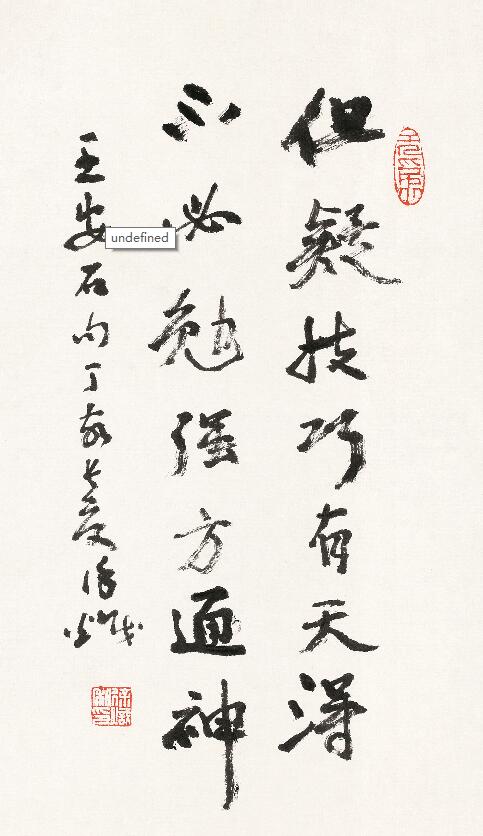 但疑技巧有天得
不必勉强方通神
王安石句丁亥长夏徐
undefined